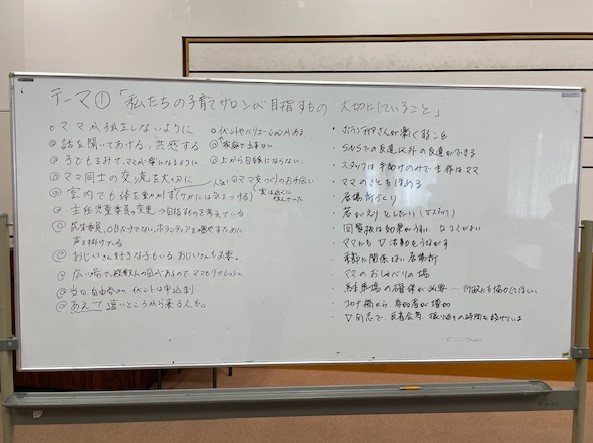 テーマ①「私たちの子育てサロンが目指すもの 大切にしていること」
○ママが孤立しないように
◎話を聞いてあげる、共感する
◎子どもをみて、ママが楽になるように
◎ママ同士の交流を大切に
◎室内でも体を動かす(ケガには気をつける)
◎主任児童委員の変更
◎民生委員、OBだけでない、ボランティアを増やすために
声を掛けている
◎おじいさん好きな子もいるおじいさんも必要。
◎広い場で、複数人の目があるのでママもリフレッシュ
◎当日、自由参加、イベントは申込制
◎あえて遠いところから来る人も。
○イベントやバリエーションがある
◎家族で出来ない
◎上から目線にならない
◎ママ友づくりのお手伝い
実は近くに住んでいた
・ボランティアさんが楽しむこと
・SNSでの友達以外の友達ができる
・スタッフは手助けのみで主体はママ
・ママのことをほめる
・居場所づくり
・若がえりとしたい
・回覧板は効果がうすい、
・ママにも▽活動をうながす
・年齢に関係ない居場所
・ママのおしゃべりの場
・駐車場の確保が必要―行政も協力してほしい
・コロナ禍から、参加者が増加
・▽同志で、反省会等、振り返りの時間を設けている